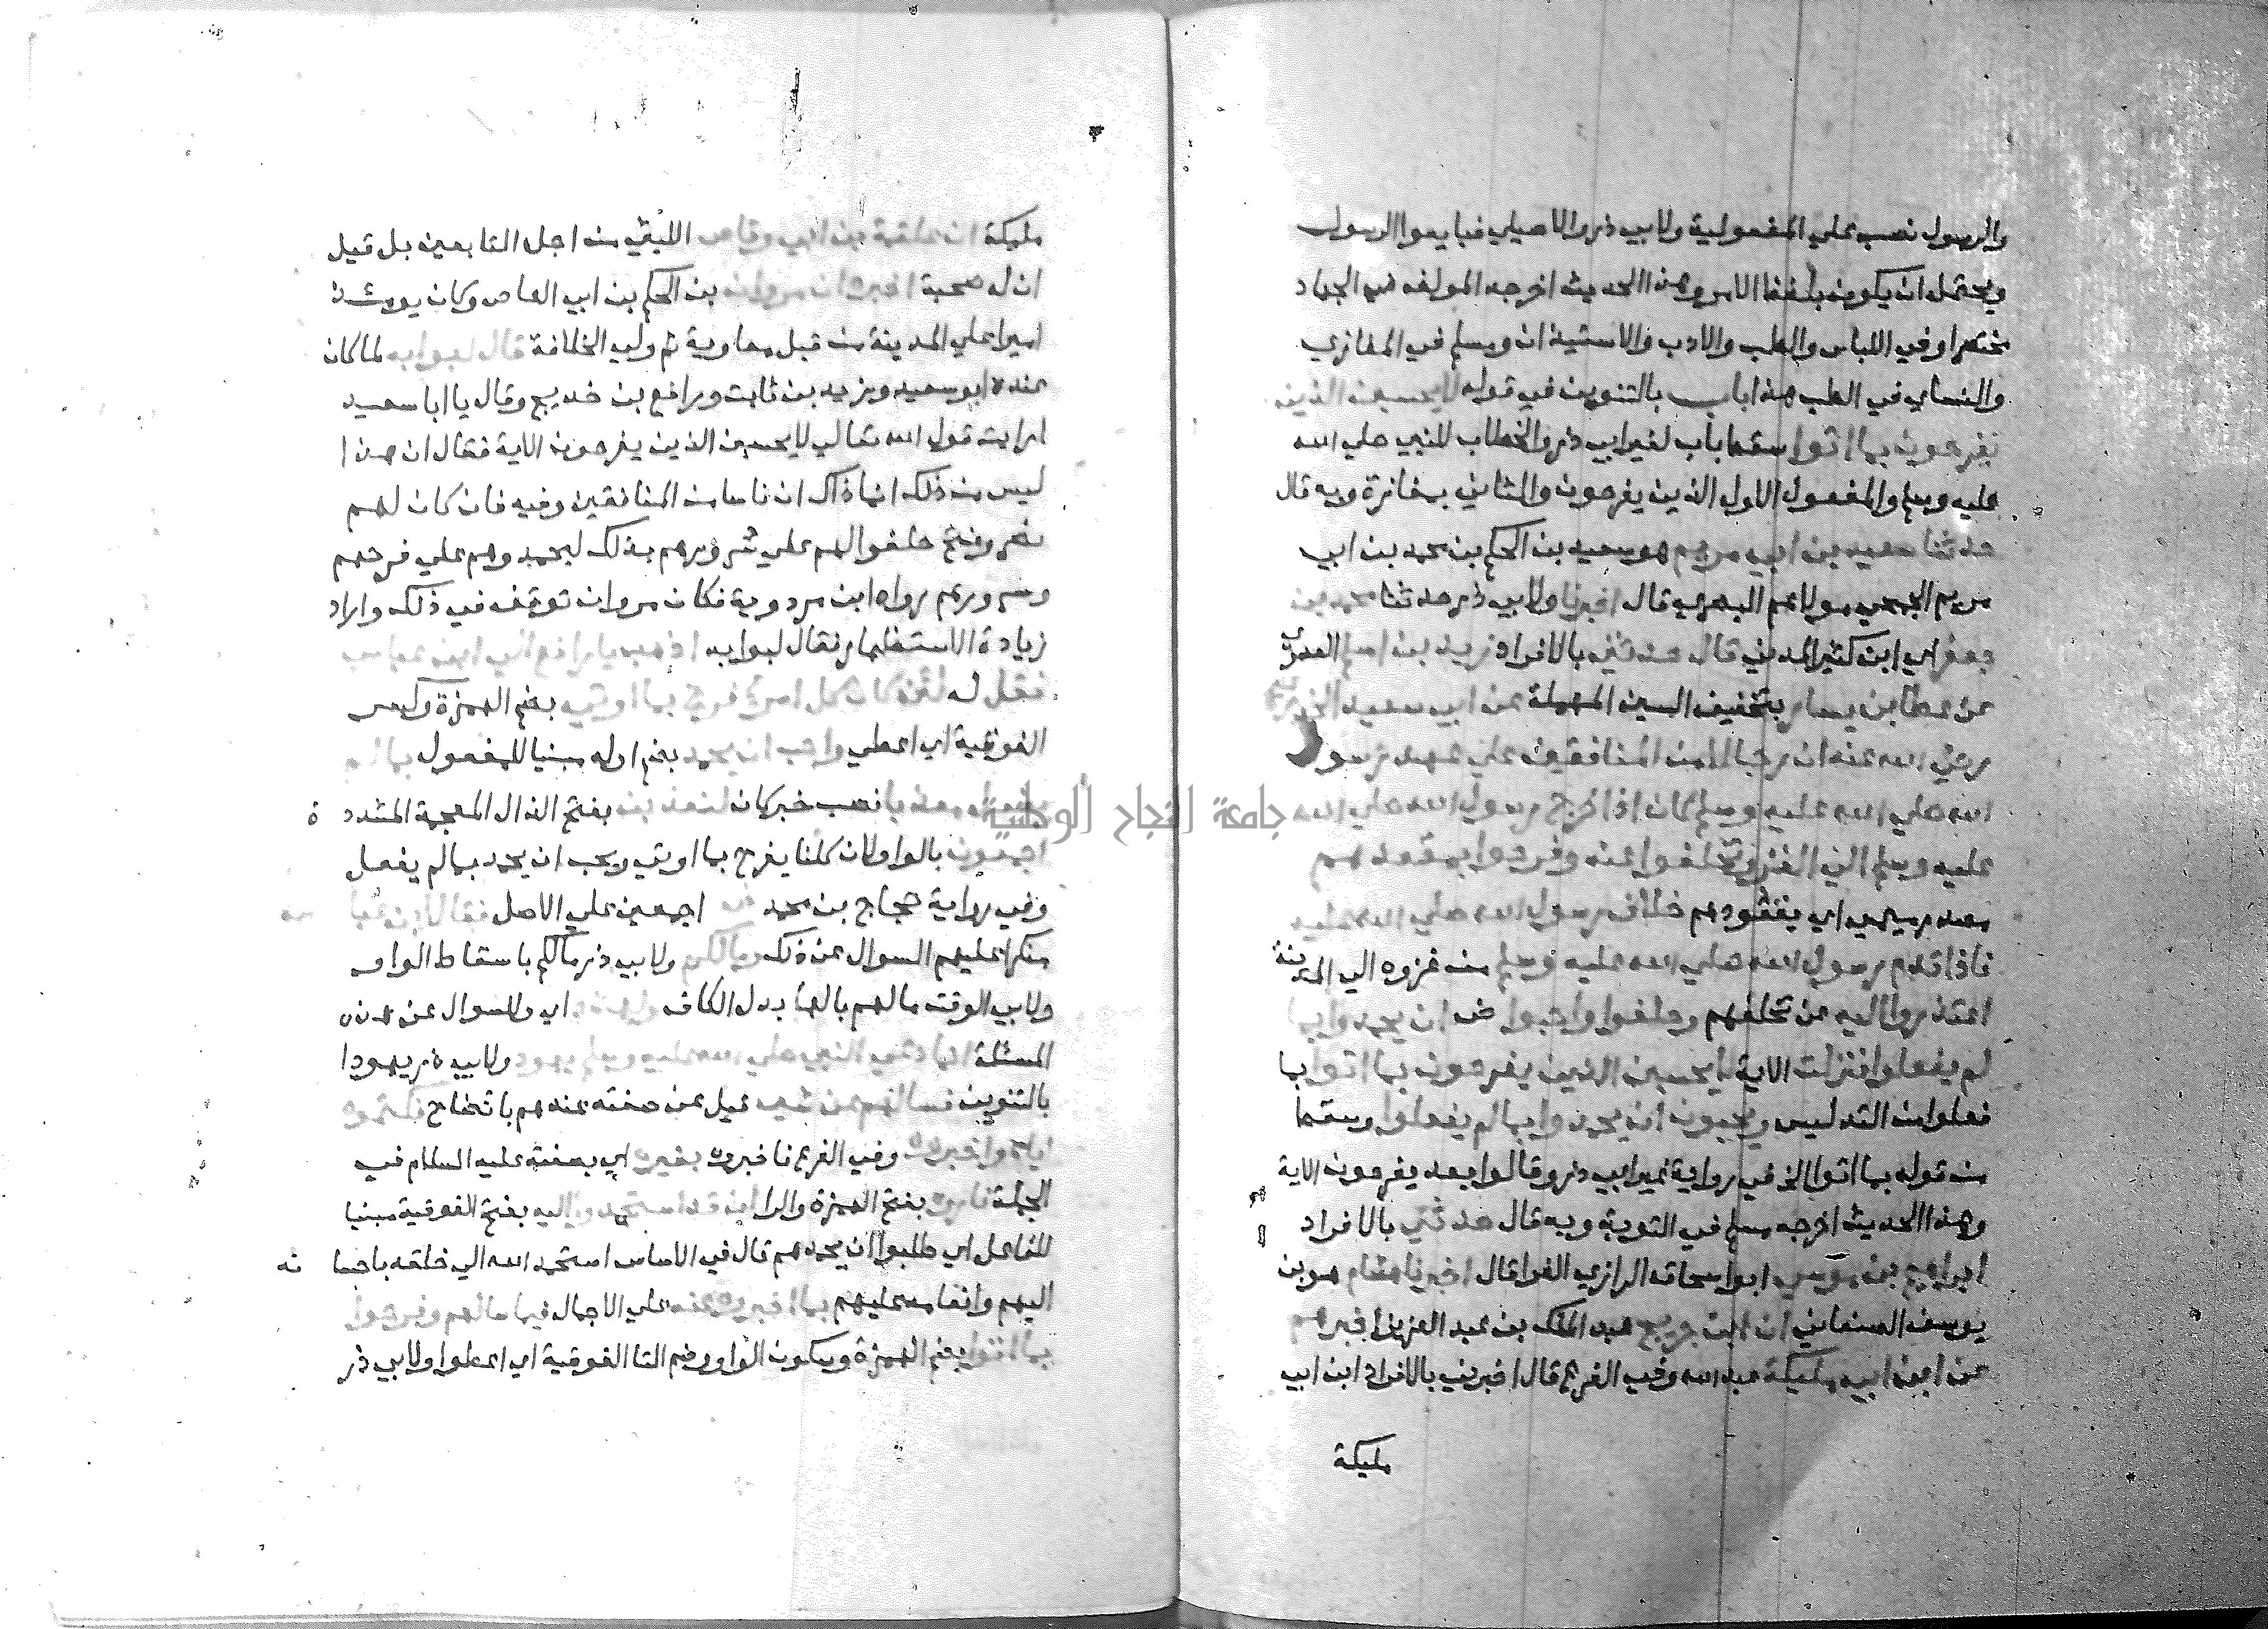 والرسول نصب علي المفعولية ولابي ذر والاصيلي فبايعوا الرسول
ويحتمل ان يكون بلفظ الامر وهذا الحديث اخرجه المولف في الجهاد
مختصرا وفي اللباس والطب والادب والاستيذان ومسلم في المغازي
والنساي في الطب هذا باب بالتنوين في قوله لا يحسبن الذين
يفرحون بما اتوا سقط باب لغير ابي ذر والخطاب للنبي صلي الله
عليه وسلم والمفعول الاول الذين يفرحون والثاني بمفازة وبه قال
حدثنا سعيد بن ابي مريم هو سعيد بن الحكم بن محمد بن ابي
مريم الجمحي مولاهم البصري قال اخبرنا ولابي ذر حدثنا محمد بن
جعفر اي ابن كثير المدني قال حدثني بالافراد زيد بن اسلم العدوي
عن عطا بن يسار بتخفيف السين المهملة عن ابي سعيد الخدري
رضي الله عنه ان رجالا من المنافقين علي عهد رسول
الله صلي الله عليه وسلم كان اذا خرج رسول الله صلي الله
عليه وسلم الي الغزو تخلفوا عنه وفرحوا بمقعدهم
مصدر ميمي اي بقعودهم خلاف رسول الله صلي الله عليه
فاذا قدم رسول الله صلي الله عليه وسلم من غزوه الي المدينة
اعتذروا اليه عن تخلفهم وحلفوا واحبوا ان يحمدوا بما
لم يفعلوا فنزلت الاية لا يحسبن الذين يفرحون بما اتوا بما
فعلوا من التدليس ويحبون ان يحمدوا بما لم يفعلوا وسقط
من قوله بما اتوا الخ في رواية غير ابي ذر وقالوا بعد يفرحون الاية
وهذا الحديث اخرجه مسلم في التوبة وبه قال حدثني بالافراد
ابراهيم بن موسي ابو اسحاق الرازي الفرا قال اخبرنا هشام هو بن
يوسف الصنعاني ان ابن جريج عبد الملك بن عبد العزيز اخبرهم
عن ابن ابي مليكة عبد الله وفي الفرع قال اخبرني بالافراد ابن ابي
مليكة
مليكة ان علقمة بن ابي وقاص الليثي من اجل التابعين بل قيل
ان له صحبة اخبره ان مروان بن الحكم بن ابي العاص وكان يومئذ
اميرا علي المدينة من قبل معاوية ثم ولي الخلافة قال لبوابه لما كان
عنده ابو سعيد ويزيد بن ثابت ورافع بن خديج وقال يا ابا سعيد
ارايت قول الله تعالي لا يحسبن الذين يفرحون الاية فقال ان هذا
ليس من ذلك انما ذاك ان ناسا من المنافقين وفيه فان كان لهم
نصر وفتح حلفوا لهم علي سرورهم بذلك ليحمدوهم علي فرحهم
وسرورهم رواه ابن مردوية فكان مروان توقف في ذلك واراد
زيادة الاستظهار فقال لبوابه اذهب يا رافع الي ابن عباس
فقل له لئن كان كل امرئ فرح بما اوتي بضم الهمزة وكسر
الفوقية اي اعطي واحب ان يحمد بضم اوله مبنيا للمفعول بما لم
يفعل معذبا نصب خبر كان لنعذبن بفتح الذال المعجمة المشددة
اجمعون بالواو لان كلنا يفرح بما اوتي ويحب ان يحمد بما لم يفعل
وفي رواية حجاج بن محمد اجمعين علي الاصل فقال ابن عباس
منكرا عليهم السوال عن ذلك ومالكم ولابي ذر مالكم باسقاط الواو
ولابي الوقت مالهم بالها بدل الكاف ولهذه اي وللسوال عن هذه
المسئلة انما دعي النبي صلي الله عليه وسلم يهود ولابي ذر يهودا
بالتنوين فسالهم عن شي قيل عن صفته عندهم بايضاح فكتموه
اياه واخبروه وفي الفرع فاخبروه بغيره اي بصفته عليه السلام في
الجملة فاروه بفتح الهمزة والرا ان قد استحمدوا اليه بفتح الفوقية مبنيا
للفاعل اي طلبوا ان يحمدهم قال في الاساس استحمد الله الي خلقه باحسانه
اليهم وانعامه عليهم بما اخبروه عنه علي الاجمال فيما سالهم وفرحوا
بما اوتوا بضم الهمزة وسكون الواو وضم التا الفوقية اي اعطوا ولابي ذر
جامعة النجاح الوطنية